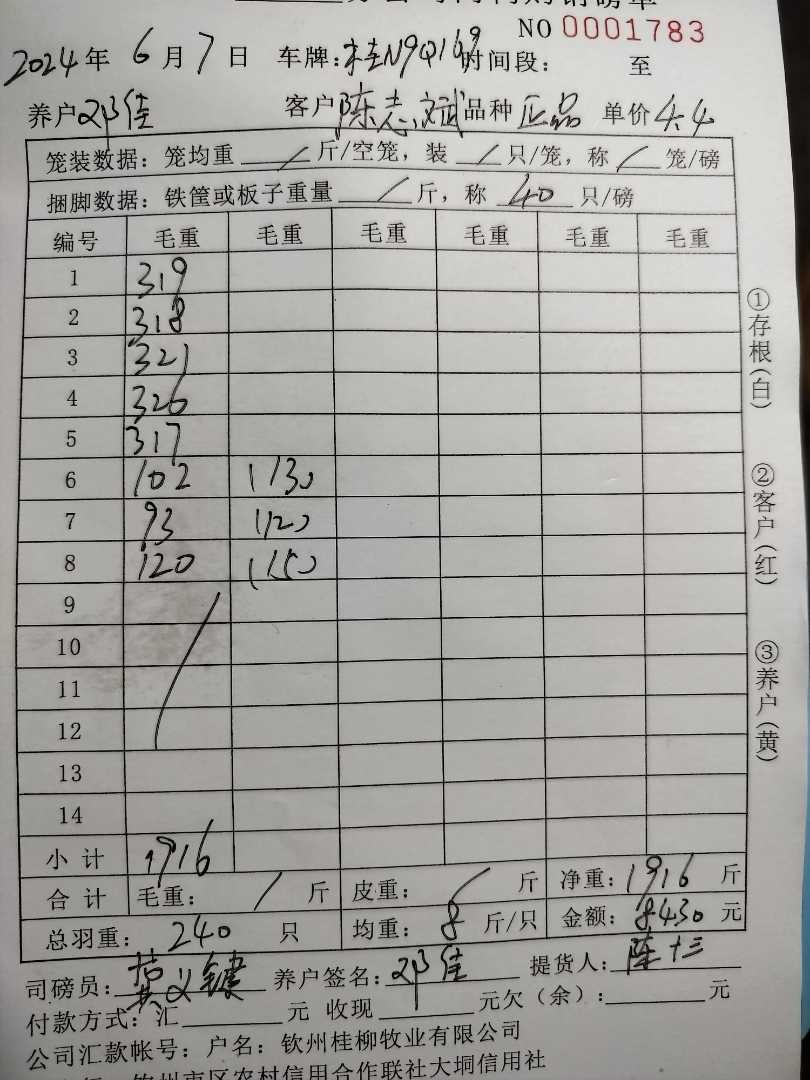 NO 0001783
2024年 6月 7日 车牌: 桂N9Q169 时间段: 至
养户 邓佳 客户 陈志斌 品种 正品 单价 4.4
笼装数据: 笼均重 / 斤/空笼, 装 / 只/笼, 称 / 笼/磅
捆脚数据: 铁筐或板子重量 / 斤, 称 40 只/磅
编号 毛重 毛重 毛重 毛重 毛重 毛重
1 319
2 318
3 321
4 326
5 317
6 102 (130)
7 93 (120)
8 120 (150)
9
10
11
12
13
14
小计 1916
合计 毛重: / 斤 皮重: / 斤 净重: 1916 斤
总羽重: 240 只 均重: 8 斤/只 金额: 8430 元
司磅员: 黄义键 养户签名: 邓佳 提货人: 陈十三
付款方式: 汇 元 收现 元欠(余): 元
公司汇款帐号: 户名: 钦州桂柳牧业有限公司
钦州市区农村信用合作联社大垌信用社
①存根(白)
②客户(红)
③养户(黄)